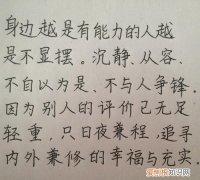 身边越是有能力的人越
是不显摆。沉静、从容、
不自以为是、不与人争锋,
因为别人的评价已无足
轻重,只日夜兼程,追寻
内外兼修的幸福与充实.